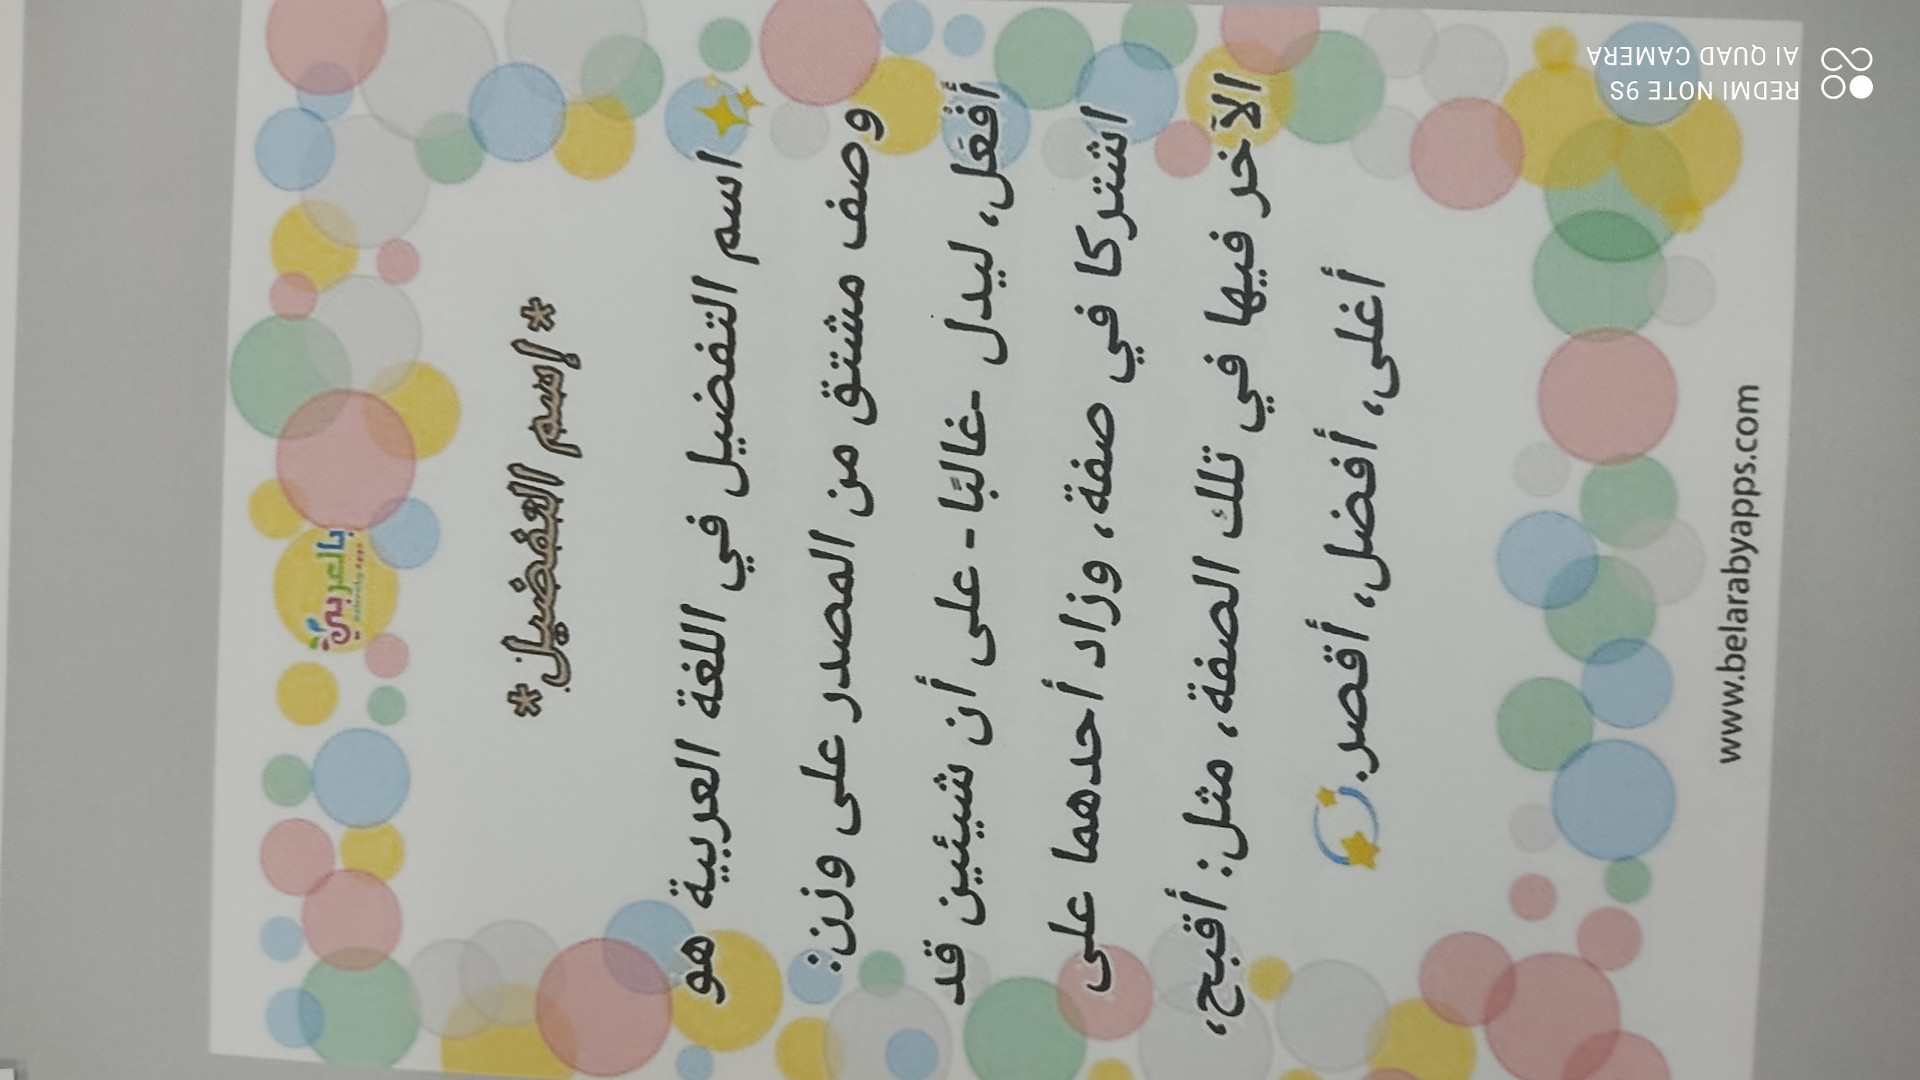 بالعربي
*إسم التفضيل*
اسم التفضيل في اللغة العربية هو
وصف مشتق من المصدر على وزن:
أَفْعَل، ليدل -غالبًا- على أن شيئين قد
اشتركا في صفة، وزاد أحدهما على
الآخر فيها في تلك الصفة، مثل: أقبح،
أغلى، أفضل، أقصر.
www.belarabyapps.com
REDMI NOTE 9S
AI QUAD CAMERA